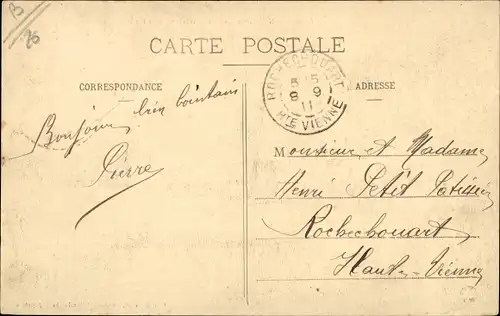 B
CARTE POSTALE
CORRESPONDANCE
ADRESSE
ROCHECHOUART
5 15
8 9
11
HTE VIENNE
Bonjour bien lointain
Pierre
Monsieur et Madame
Henri Petit Patissier
Rochechouart
Haute-Vienne